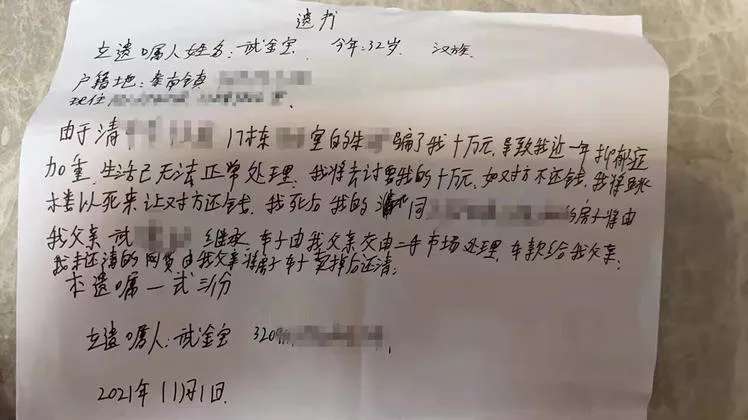 遗书
立遗嘱人姓名:试金宝 今年:32岁 汉族
户籍地:阜南镇
现住
由于清 17栋 室的朱 骗了我十万元,导致我近一年抑郁症
加重,生活已无法正常处理,我将去讨要我的十万元,如对方不还钱,我将跳
楼以死来让对方还钱,我死后我的 同 的房子将由
我父亲试 继承,车子由我父亲交由二手市场处理,车款给我父亲;
我未还清的网贷由我父亲将房子车子卖掉后还清;
本遗嘱一式三份
立遗嘱人:试金宝 3209
2021年11月1日